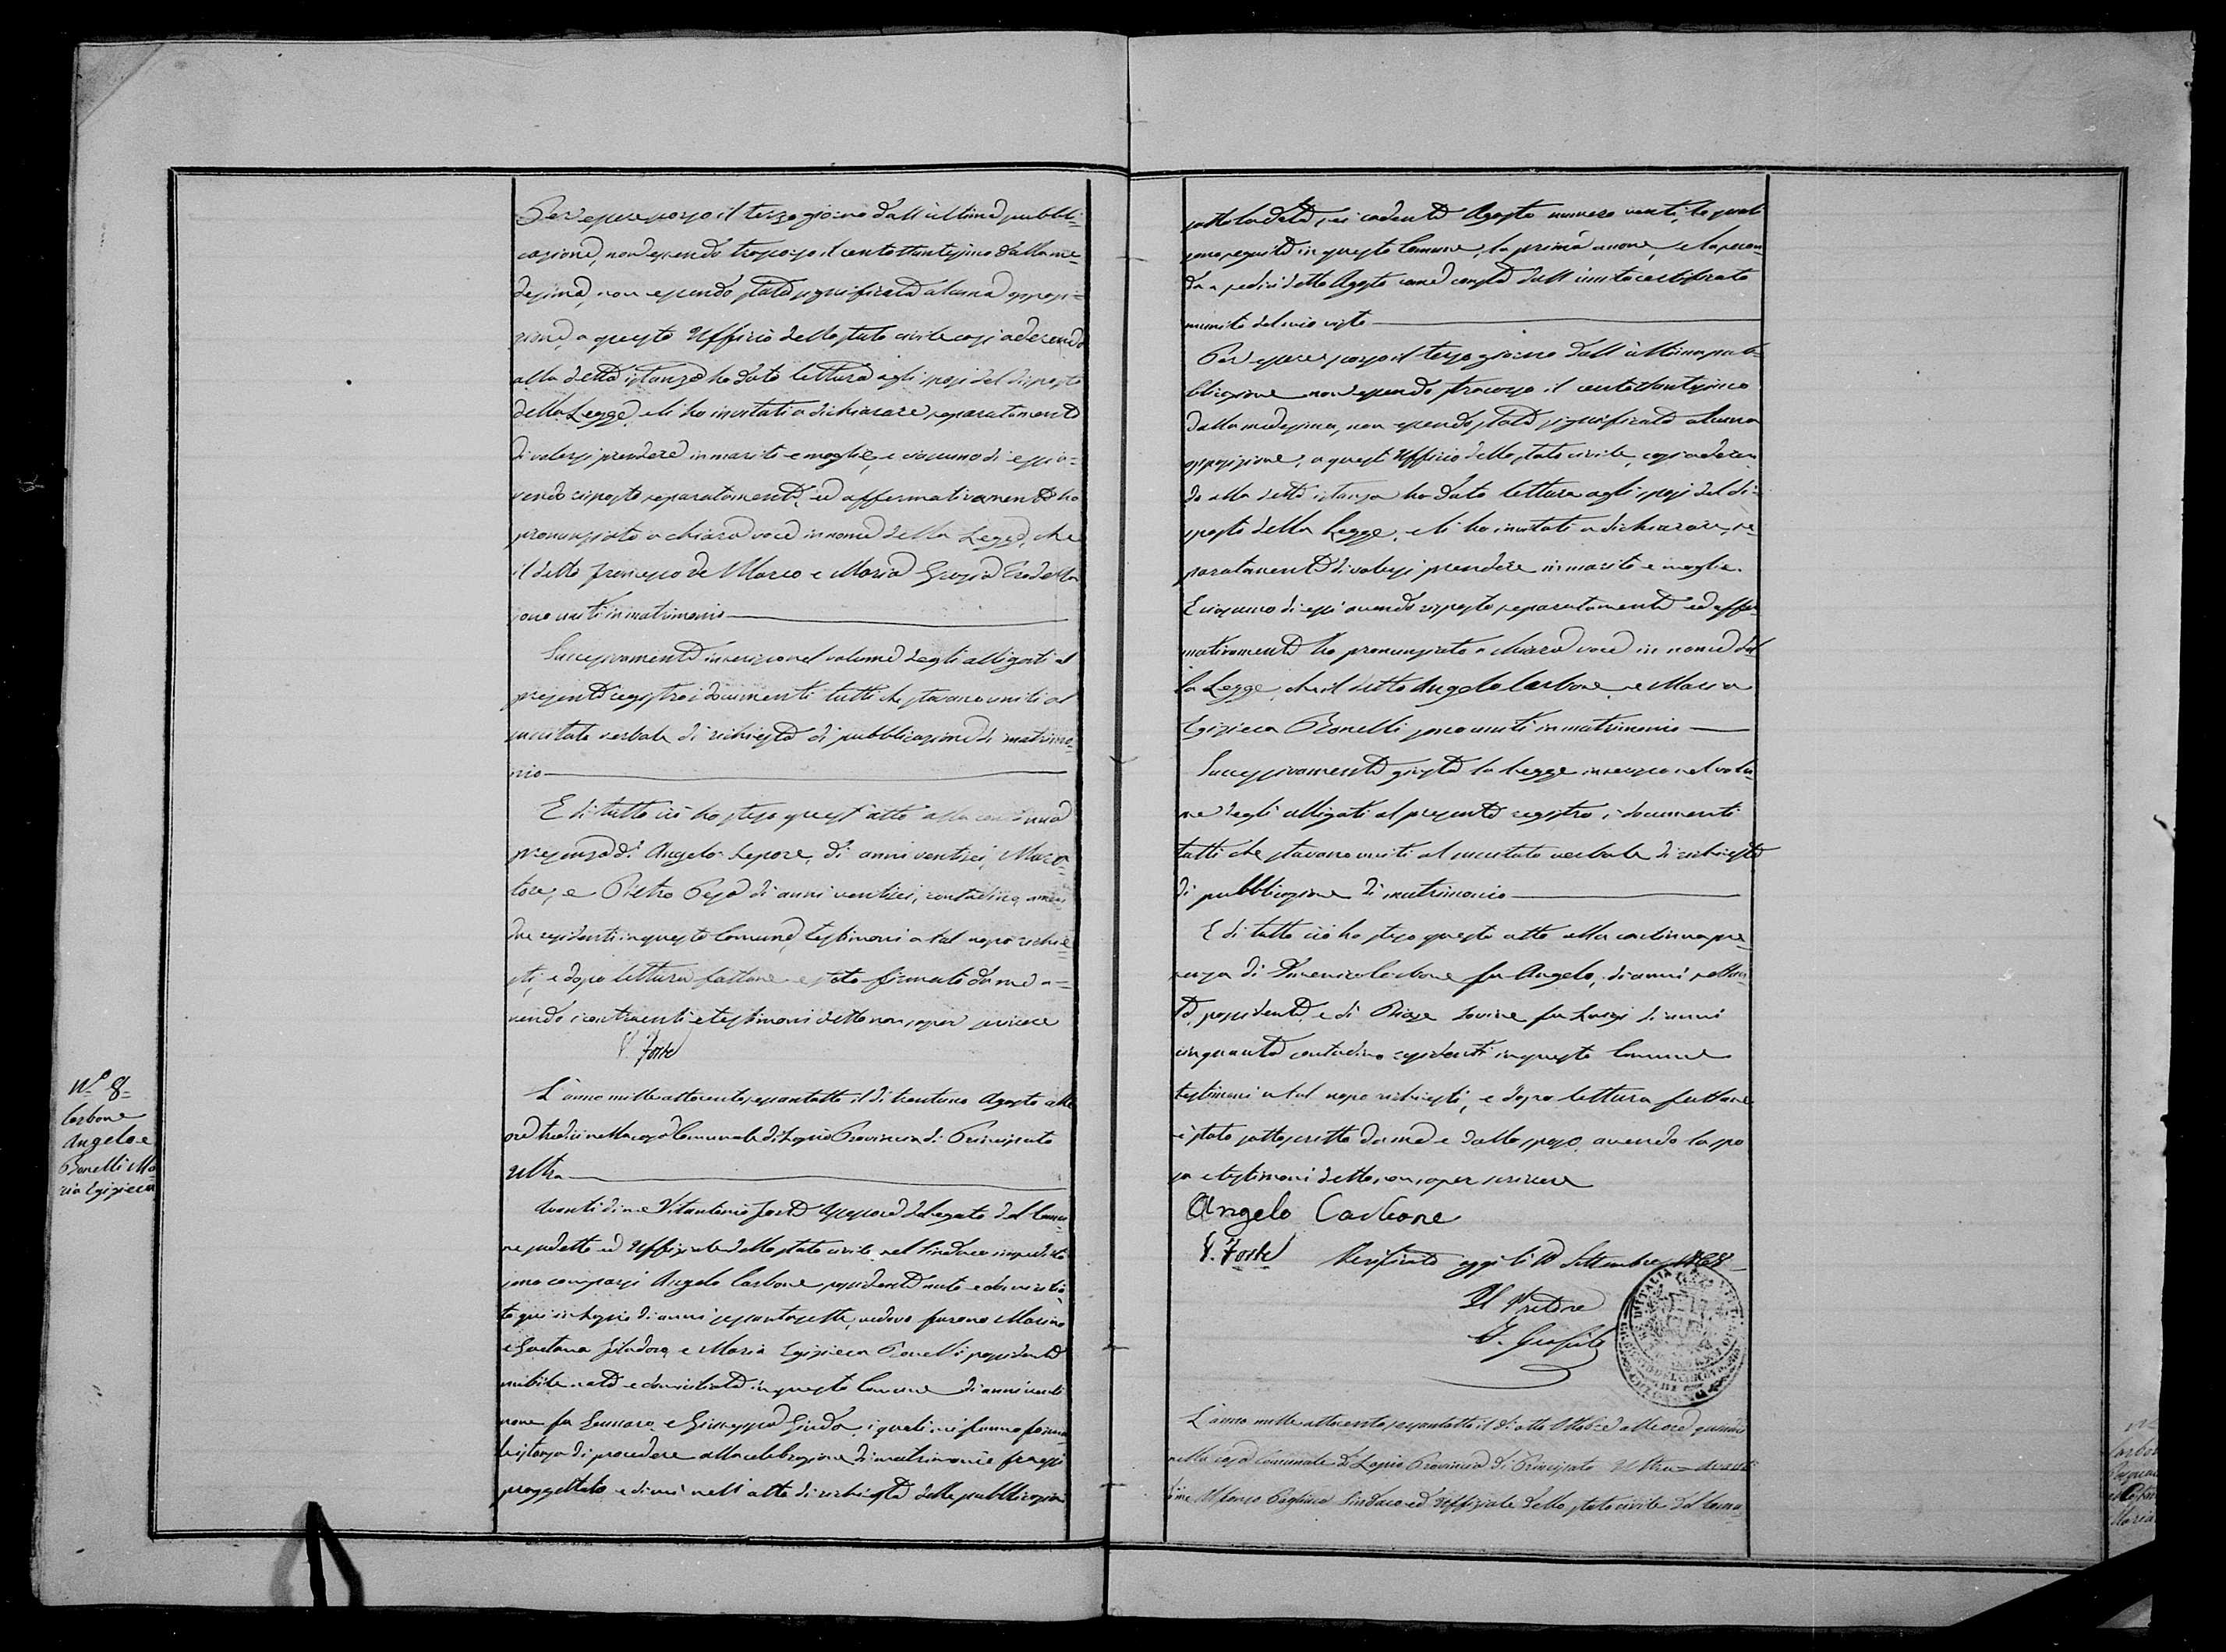 Per essere scorso il terzo giorno dall'ultima pubbli=
cazione, non essendo trascorso il centottantesimo dalla me=
desima, non essendo stata significata alcuna opposi=
zione, a questo Uffizio dello stato civile così aderendo
alla detta istanza ho dato lettura agli sposi del disposto
della Legge, e li ho invitati a dichiarare separatamente
di volersi prendere in marito e moglie, e ciascuno di essi a=
vendo risposto separatamente, ed affermativamente ho
pronunziato a chiara voce in nome della Legge, che
il detto Francesco de Marco e Maria Grazia
sono uniti in matrimonio
Successivamente inserisco nel volume degli alligati al
presente registro i documenti tutti che stavano uniti al
succitato verbale di richiesta di pubblicazione di matrimo=
nio
E di tutto ciò ho steso quest'atto alla continua
presenza di Angelo Lepore, di anni ventisei, Mura=
tore, e Pietro di anni ventisei, contadino, amen
due residenti in questo Comune, testimoni a tal uopo richie=
sti, e dopo lettura fattane è stato firmato da me a=
vendo i contraenti e testimoni detto non saper scrivere
V. Forte
Nº 8=
Carbone
Angelo e
Ronelli Ma
ria Egiziaca
L'anno mille ottocento sessantotto il dì trentuno Agosto alle
ore tredici nella casa Comunale di Lapio Provincia di Principato
Ultra
Avanti di me Vitantonio Forte Assessore delegato del Comu=
ne sudetto ed Uffiziale dello stato civile pel Sindaco impedito
sono comparsi Angelo Carbone, possidente nato e domicilia=
to qui in Lapio di anni sessantasette, vedovo furono Marino
e Gaetana e Maria Egiziaca Ronelli possidente
nubile nata e domiciliata in questo Comune di anni venti
nove fu Gennaro, e Giuseppa Guida, i quali mi fanno forma
le istanza di procedere alla celebrazione di matrimonio fra essi
proggettato e di cui nell'atto di richiesta delle pubblicazioni
sotto la data sei cadente Agosto numero venti, le quali
sono seguite in questo Comune, la prima a nove, e la secon
da a sedici detto Agosto come consta dall'unito certificato
munito del mio visto
Per essere scorso il terzo giorno dall'ultima pub=
blicazione non essendo trascorso il centottantesimo
dalla medesima, non essendo stata significata alcuna
opposizione, a quest'Uffizio dello stato civile, così aderen
do alla detta istanza ho dato lettura agli sposi del di=
sposto della Legge, e li ho invitati a dichiarare, se
paratamente di volersi prendere in marito e moglie.
E ciascuno di essi avendo risposto separatamente ed affer
mativamente ho pronunziato a chiara voce in nome del
la Legge, che il detto Angelo Carbone, e Maria
Egiziaca Ronelli sono uniti in matrimonio
Successivamente giusta la Legge inserisco nel volu
me degli alligati al presente registro, i documenti
tutti che stavano uniti al succitato verbale di richiesta
di pubblicazione di matrimonio
E di tutto ciò ho steso questo atto alla continua pre
senza di Carbone fu Angelo, di anni
possidente, e di Biage Iovine fu Luigi di anni
cinquanta contadino residenti in questo Comune
testimoni a tal uopo richiesti, e dopo lettura fattane
è stato sottoscritto da me e dallo sposo, avendo la spo
sa e testimoni detto, non saper scrivere
Angelo Carbone
V. Forte
Verificato oggi li 10 Settembre 1868
Il Pretore
L'anno mille ottocento sessantotto il dì otto Ottobre alle ore quindici
nella casa Comunale di Lapio Provincia di Principato Ultra avanti
di me Alfonso Sindaco ed Uffiziale dello stato civile del Comu